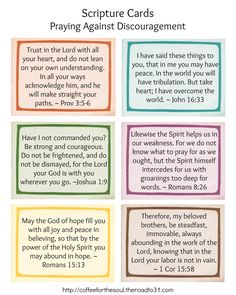 Scripture Cards
Praying Against Discouragement
Trust in the Lord with all
your heart, and do not lean
on your own understanding.
In all your ways
acknowledge him, and he
will make straight your
paths. ~ Prov 3:5-6
I have said these things to
you, that in me you may have
peace. In the world you will
have tribulation. But take
heart; I have overcome the
world. ~ John 16:33
Have I not commanded you?
Be strong and courageous.
Do not be frightened, and do
not be dismayed, for the Lord
your God is with you
wherever you go. ~Joshua 1:9
Likewise the Spirit helps us in
our weakness. For we do not
know what to pray for as we
ought, but the Spirit himself
intercedes for us with
groanings too deep for
words. ~ Romans 8:26
May the God of hope fill you
with all joy and peace in
believing, so that by the
power of the Holy Spirit you
may abound in hope. ~
Romans 15:13
Therefore, my beloved
brothers, be steadfast,
immovable, always
abounding in the work of the
Lord, knowing that in the
Lord your labor is not in vain.
~ 1 Cor 15:58
http://coffeeforthesoul.theroadto31.com